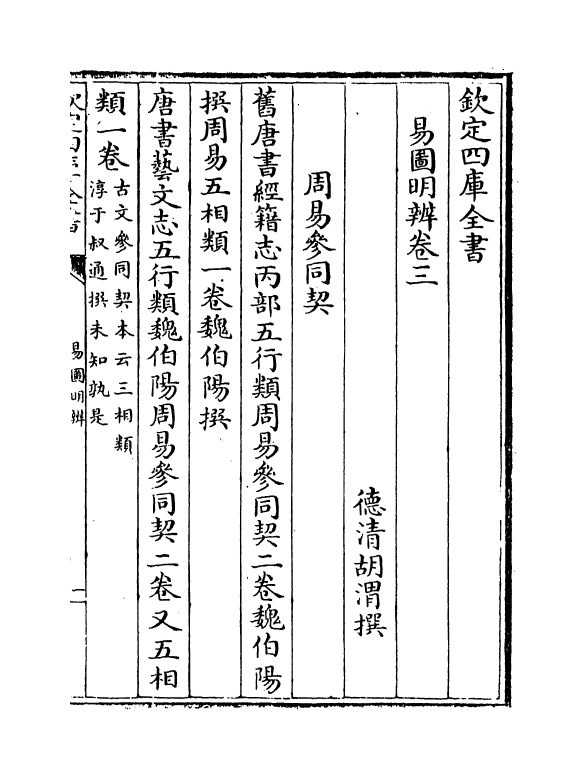 欽定四庫全書
易圖明辨卷三
德清胡渭撰
周易參同契
舊唐書經籍志丙部五行類周易參同契二卷魏伯陽
撰周易五相類一卷魏伯陽撰
唐書藝文志五行類魏伯陽周易參同契二卷又五相
類一卷
古文參同契本云三相類
淳于叔通撰未知孰是
易圖明辨
一